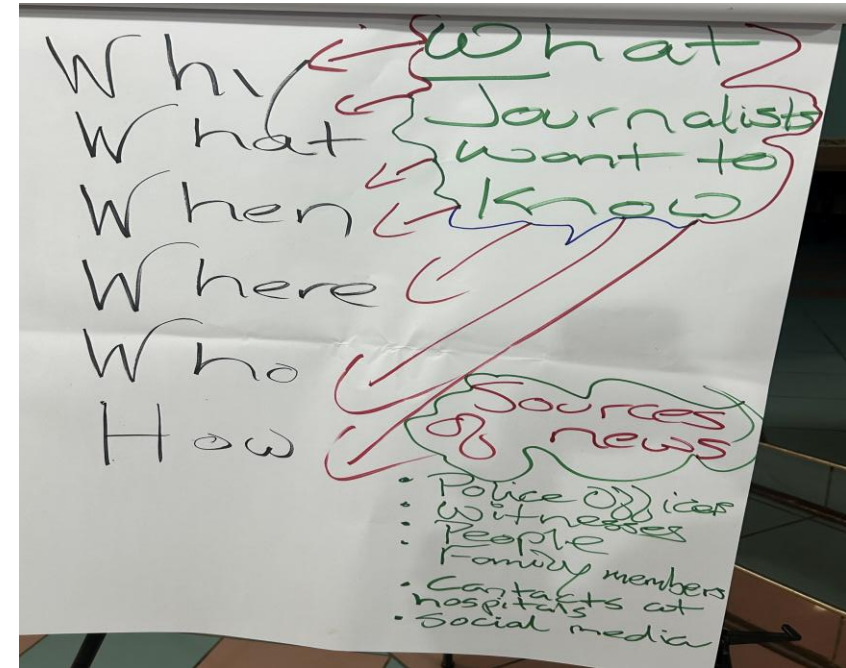 Why
What
When
Where
Who
How
What
Journalists
want to
Know
Sources
of news
• Police Officers
• Witnesses
• People
• Family members
• Contacts at
hospitals
• Social media